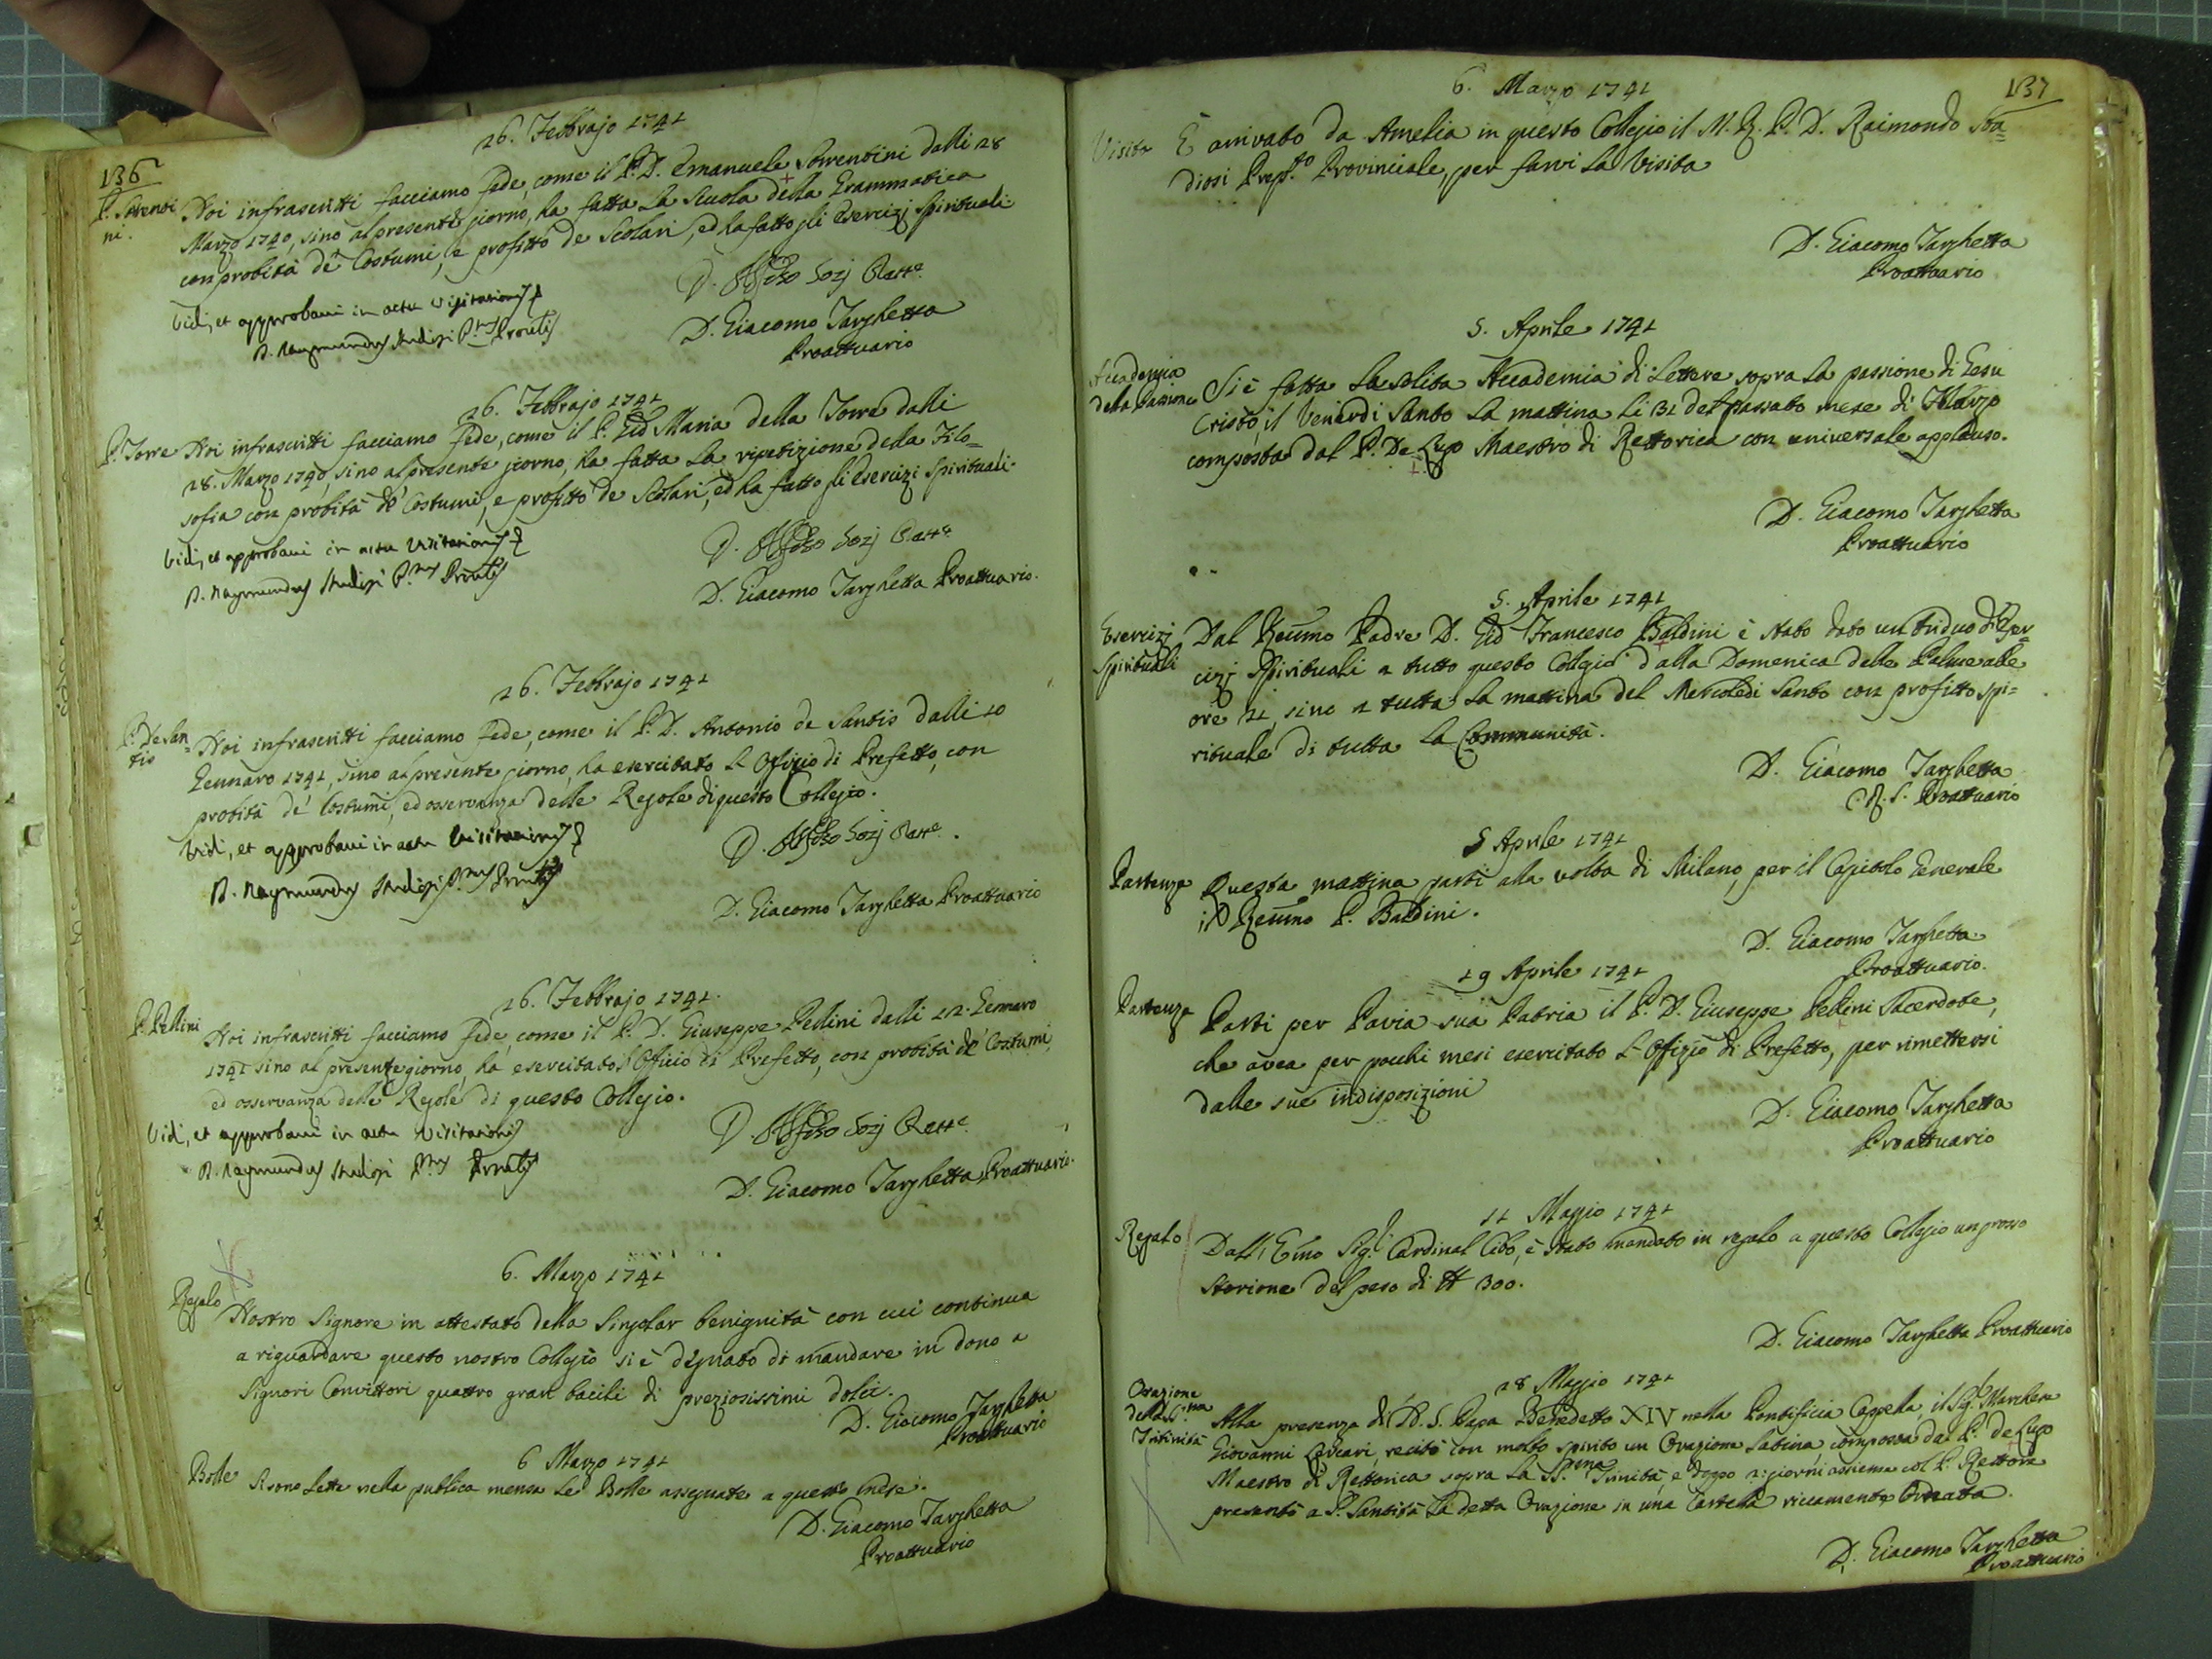 136
26. Febbrajo 1741
P. Sorrenti
ni.
Noi infrascritti facciamo fede, come il P. D. Emanuele Sorrentini dalli 28
Marzo 1740, sino al presente giorno, ha fatta la Scuola della Grammatica
con probità de' Costumi, e profitto de Scolari, ed ha fatto gli Esercizj Spirituali.
Vidi, et approbavi in actu Visitationis
D. Raymundus Studiosi P.tus Provlis
D. Sozj Rett.e
D. Giacomo Targhetta
Proattuario
26. Febbrajo 1741
P. Torre
Noi infrascritti facciamo fede, come il P. Gio Maria della Torre dalli
28. Marzo 1740, sino al presente giorno, ha fatta la ripetizione della Filo=
sofia con probità de' Costumi, e profitto de Scolari, ed ha fatto gli Esercizi Spirituali.
Vidi, et approbavi in actu Visitationis
D. Raymundus Studiosi P.tus Provlis
D. Sozj Rett.e
D. Giacomo Targhetta Proattuario.
26. Febbrajo 1741
P. De San=
tis
Noi infrascritti facciamo fede, come il P. D. Antonio de Santis dalli 10
Gennaro 1741, sino al presente giorno, ha esercitato L'Ofizio di Prefetto, con
probità de' Costumi, ed osservanza delle Regole di questo Collegio.
Vidi, et approbavi in actu Visitationis
D. Raymundus Studiosi P.tus Provlis
D. Sozj Rett.e
D. Giacomo Targhetta Proattuario
26. Febbrajo 1741.
P. Pellini
Noi infrascritti facciamo fede, come il P. D. Giuseppe Pellini dalli 12. Gennaro
1741 sino al presente giorno, ha esercitato l'Officio di Prefetto, con probità de' Costumi,
ed osservanza delle Regole di questo Collegio.
Vidi, et approbavi in actu Visitationis
D. Raymundus Studiosi P.tus Provlis
D. Sozj Rett.e
D. Giacomo Targhetta Proattuario.
6. Marzo 1741
Regalo
Nostro Signore in attestato della Singolar benignità con cui continua
a riguardare questo nostro Collegio si è degnato di mandare in dono a
Signori Convittori quattro gran bacili di preziosissimi dolci.
D. Giacomo Targhetta
Proattuario
6 Marzo 1741
Bolle
Si sono lette nella publica mensa le Bolle assegnate a questo mese.
D. Giacomo Targhetta
Proattuario
137
6. Marzo 1741
Visita
È arrivato da Amelia in questo Collegio il M. R. P. D. Raimondo Stu=
diosi Prep.to Provinciale, per farvi la Visita
D. Giacomo Targhetta
Proattuario
5. Aprile 1741
Accademia
della Passione
Si è fatta la solita Accademia di Lettere sopra la passione di Gesu
Cristo, il Venerdi Santo la mattina li 31 del passato mese di Marzo
composta dal P. De Lugo Maestro di Rettorica con universale applauso.
D. Giacomo Targhetta
Proattuario
5. Aprile 1741
Esercizj
Spirituali
Dal Reumo Padre D. Gio Francesco Baldini è stato dato un triduo d'Eser=
cizj Spirituali a tutto questo Collegio dalla Domenica delle Palme alle
ore 21, sino a tutta la mattina del Mercoledi Santo con profitto spi=
rituale di tutta la Communità.
D. Giacomo Targhetta
C. R. S. Proattuario
5 Aprile 1741
Partenza
Questa mattina partì alla volta di Milano, per il Capitolo Generale
il Reumo P. Baldini.
D. Giacomo Targhetta
Proattuario.
19 Aprile 1741
Partenza
Partì per Pavia sua Patria il P. D. Giuseppe Pellini Sacerdote,
che avea per pochi mesi esercitato L'Offizio di Prefetto, per rimettersi
dalle sue indisposizioni
D. Giacomo Targhetta
Proattuario
11 Maggio 1741
Regalo
Dall'Emo Sig.r Cardinal Cibo, è stato mandato in regalo a questo Collegio un grosso
storione del peso di ℔ 300.
D. Giacomo Targhetta Proattuario
28 Maggio 1741
Orazione
della SS.ma
Trinità
Alla presenza di N. S. Papa Benedetto XIV nella Pontificia Cappella, il Sig.r Marchese
Giovanni recitò con molto spirito un Orazione Latina composta dal P. de Lugo
Maestro di Rettorica sopra la SS.ma Trinità, e doppo 2: giorni assieme col P. Rettore
presentò a S. Santità la detta Orazione in una Cartella riccamente Ornata.
D. Giacomo Targhetta
Proattuario